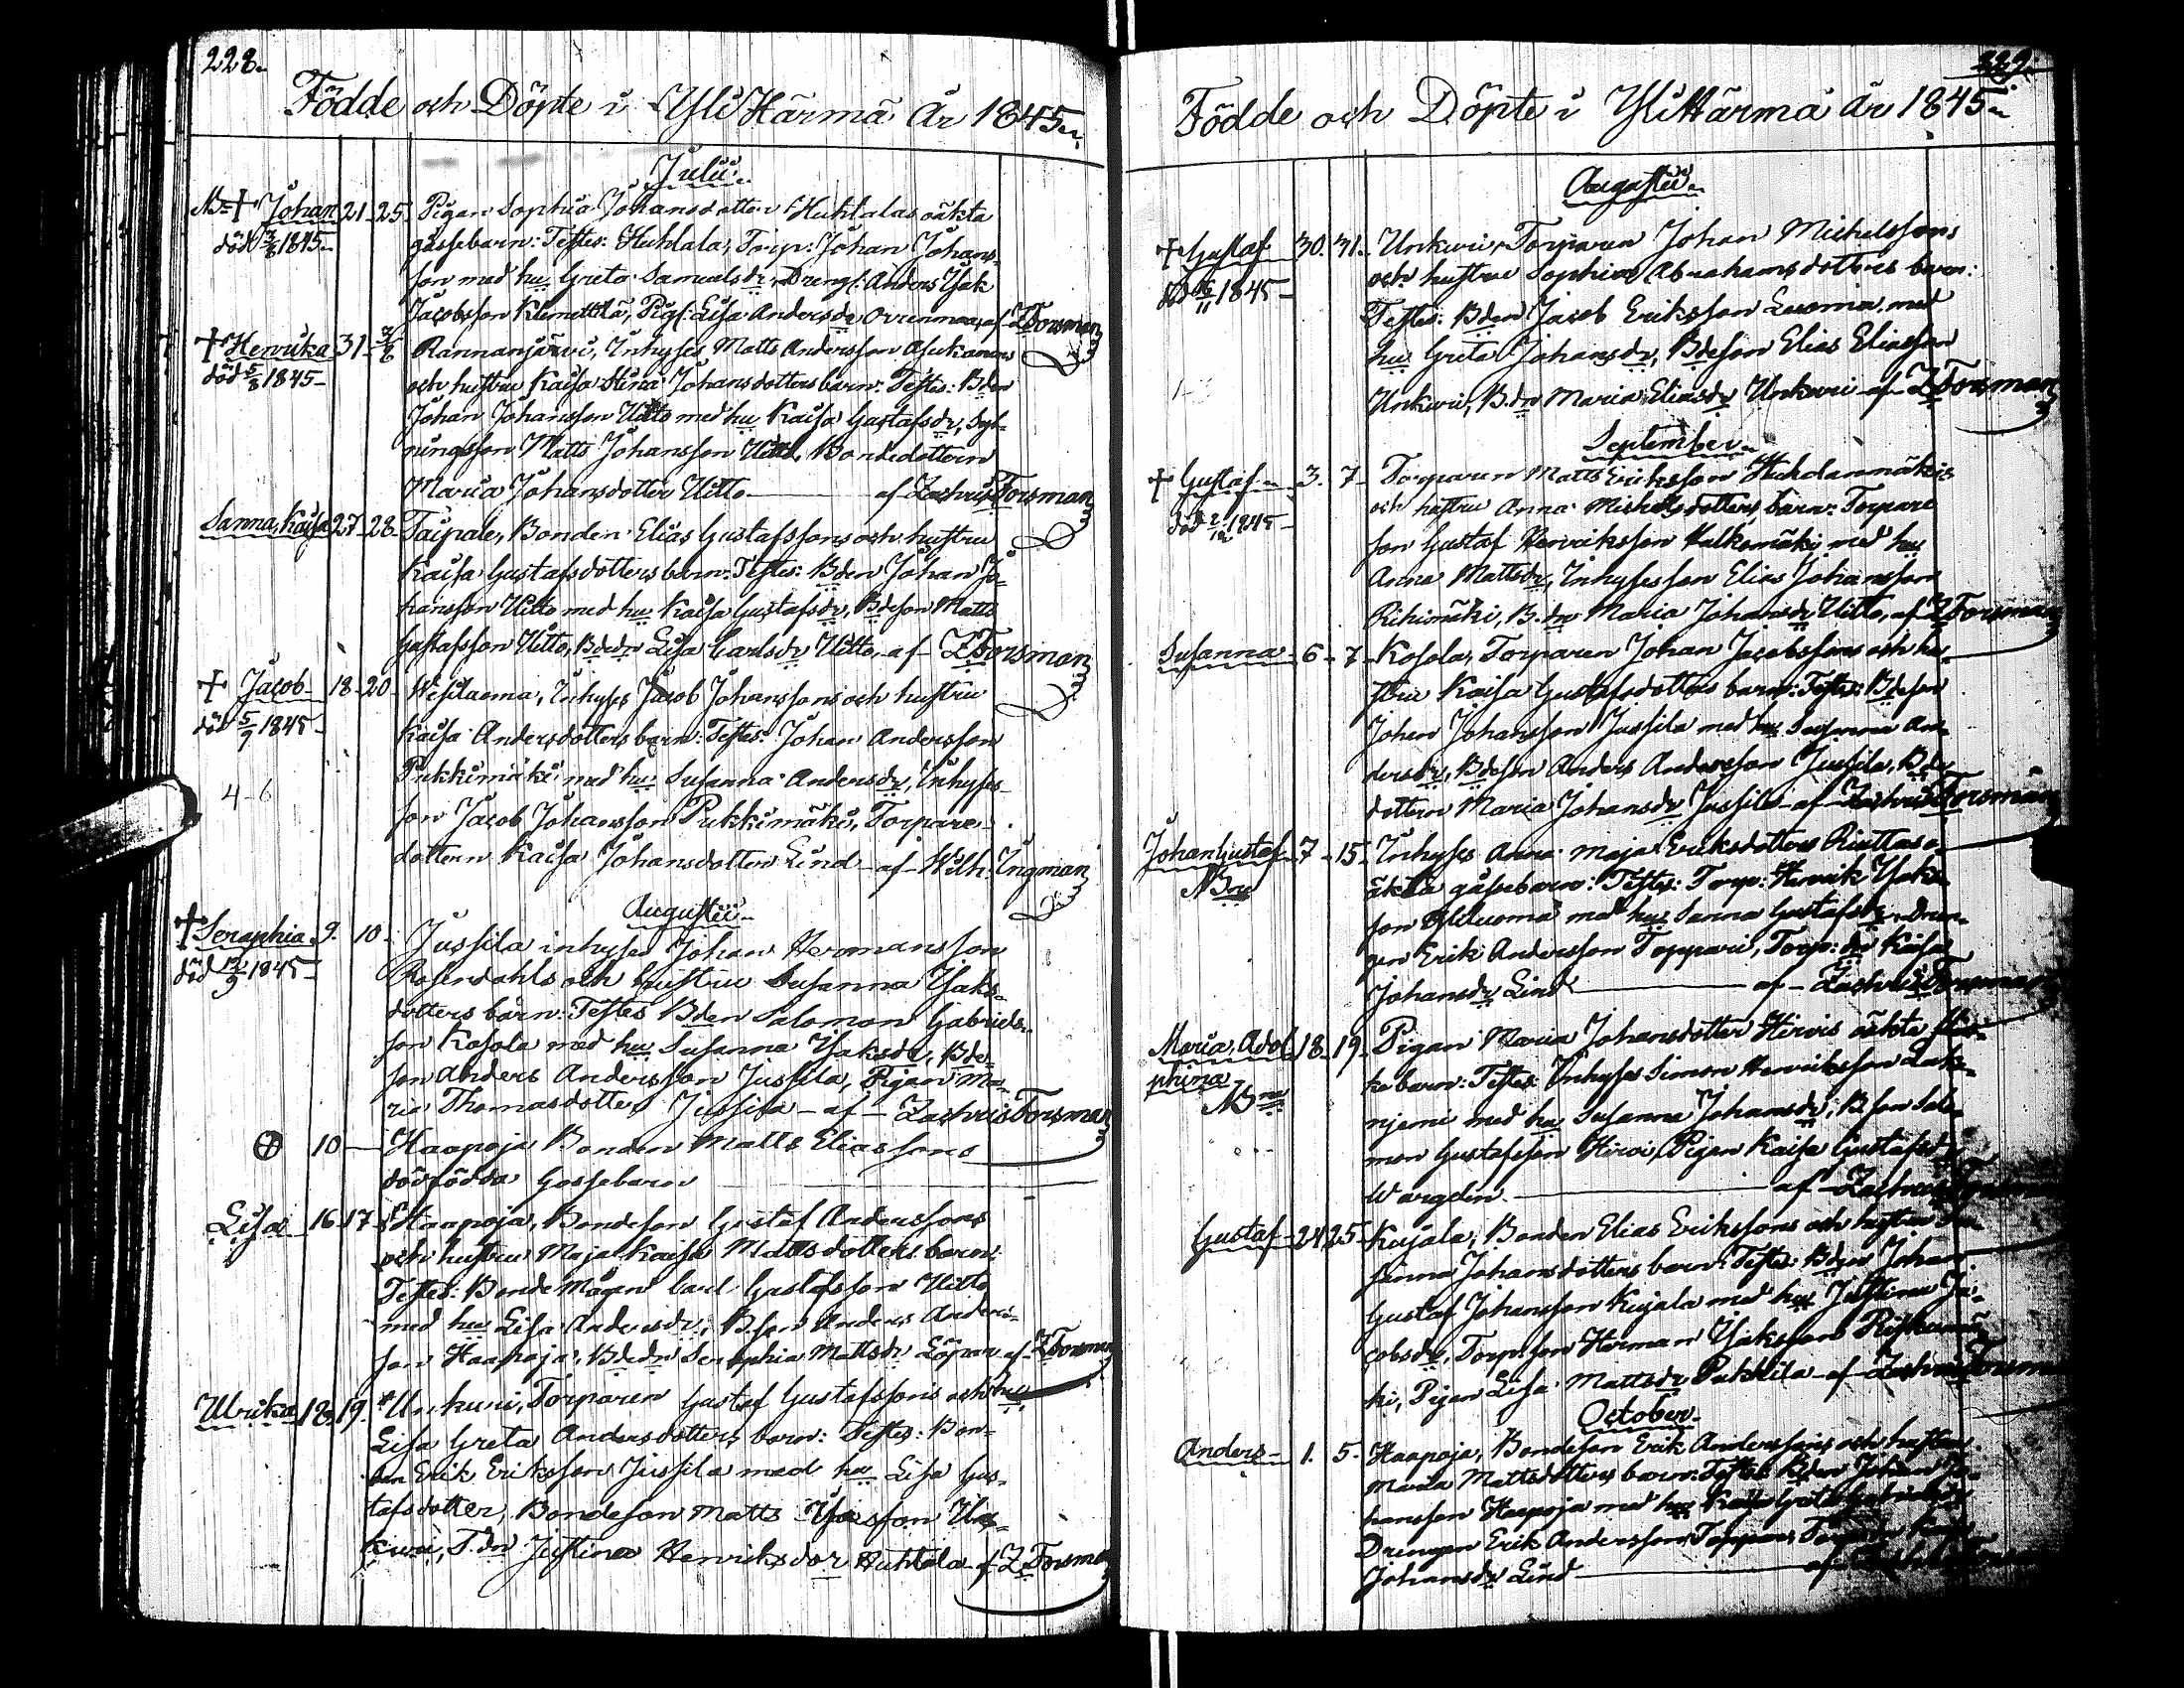 228.
Födde och Döpte i Yli Härmä År 1845.
Julii.
NB + Johan 21 25. Pigan Sophia Johansdotter Huhtalas oäkta
död 3/8 1845. gåssebarn: Testes: Huhtala, Torp: Johan Johans-
son med hu Greta Samuelsdr, Drengs: Anders Isak
Jacobsson Klemettilä, Pigs: Lisa Andersdr af Z Forsman
+ Henrika 31 3/8 Rannanjärvi, Inhyses Matts Andersson
död 5/8 1845 och hustru Kaisa Stina Johansdotters barn: Testes: Bden
Johan Johansson Uitto med hu Kaisa Gustafsdr, Syt-
ningsson Matts Johansson Uitto, Bondedottern
Maria Johansdotter Uitto af Zachris Forsman
Sanna Kaisa 27 28 Taipale, Bonden Elias Gustafssons och hustru
Kaisa Gustafsdotters barn: Testes: Bden Johan Jo-
hansson Uitto med hu Kaisa Gustafsdr, Bdeson Matts
Gustafsson Uitto, Bdedr Lisa Carlsdr Uitto, af Z Forsman
+ Jacob 18 20 Inhyses Jacob Johanssons och hustru
död 5/9 1845 Kaisa Andersdotters barn: Testes: Johan Andersson
Pukkimäki med hu Susanna Andersdr, Inhyses
4-6
son Jacob Johansson Pukkimäki, Torpare-
dottern Kaisa Johansdotter Lind af Wilh. Ingman
Augusti
+ Seraphia 9. 10. Jussila inhyses Johan Hermansson
död 12/9 1845 Rosendahls och hustru Susanna Isaks-
dotters barn: Testes Bden Salomon Gabriels-
son Kosola med hu Susanna Isaksdr, Bde-
son Anders Andersson Jussila, Pigan Ma-
ria Thomasdotter Jussila af Zachris Forsman
10 Haapoja Bonden Matts Eliassons
dödfödda Gossebarn
Lisa 16 17 Haapoja, Bondeson Gustaf Anderssons
och hustru Maja Kaisa Mattsdotters barn:
Testes: Bonde Mågen Carl Gustafsson Uitto
med hu Lisa Andersdr, B.son Anders Anders-
son Haapoja, Bdedr Seraphia Mattsdr Löpar af Z Forsman
Ulrika 18 19. Unkuri, Torparen Gustaf Gustafssons och hu
Lisa Greta Andersdotters barn: Testes: Bon-
den Erik Eriksson Jussila med hu Lisa Gus-
tafsdotter, Bondeson Matts Isaksson Un-
kuri, T. dr Justina Henriksdotr Huhtala af Z Forsman
229
Födde och Döpte i Yli Härmä År 1845
Augusti.
+ Gustaf 30. 31. Unkuri, Torparen Johan Michelssons
död 16/11 1845 och hustru Sophia Abrahamsdotters barn:
Testes: Bden Jacob Eriksson Luoma med
hu Greta Johansdr, Bdeson Elias Eliasson
Unkuri, B.dr Maria Eliasdr Unkuri af Z Forsman
September
+ Gustaf 3. 7 Torparen Matts Eriksson Huhdanmäkis
död 2/12 1845 och hustru Anna Michelsdotters barn: Torpare
son Gustaf Henriksson Kalkomäki med hu
Anna Mattsdr, Inhysesson Elias Johansson
Rihimäki, B.dr Maria Johansdr Uitto, af Z Forsman
Susanna 6 7 Kosola, Torparen Johan Jacobssons och hu-
stru Kaisa Gustafsdotters barn: Testes: Bdeson
Johan Johansson Jussila med hu Susanna An-
dersdr, Bdeson Anders Andersson Jussila, Bde
dottern Maria Johansdr Jussila af Zachris Forsman
Johan Gustaf 7 15 Inhyses Anna Maja Eriksdotters o-
NB äkta gåssebarn: Testes: Torp: Henrik Isaks-
son Yliluoma med hu Sanna Gustafsdr, Dren-
gen Erik Andersson Toppari, Torp: dr Kaisa
Johansdr Lind af Zachris Forsman
Maria Adol- 18 19 Pigan Maria Johansdotter Hirvis oäkta flic-
phina kebarn: Testes: Inhyses Simon Henriksson
NB med hu Susanna Johansdr, B.son Salo-
mon Gustafsson Hirvi, Pigan Kaisa Gustafsdr
Wargelin af Zachris Forsman
Gustaf 24 25 Kujala, Bonden Elias Erikssons och hustru Su-
sanna Johansdotters barn: Testes: Bden Johan
Gustaf Johansson Kujala med hu Justina Ja-
cobsdr, Torp.son Herman Isaksson
ki, Pigan Lisa Mattsdr Pukkila af Zachris Forsman
October
Anders 1. 5. Haapoja, Bondeson Erik Anderssons och hustru
Maria Mattsdotters barn: Testes Bden Johan Jo-
hansson Haapoja med hu Kaisa Greta
Drengen Erik Andersson Toppari,
Johansdr Lind